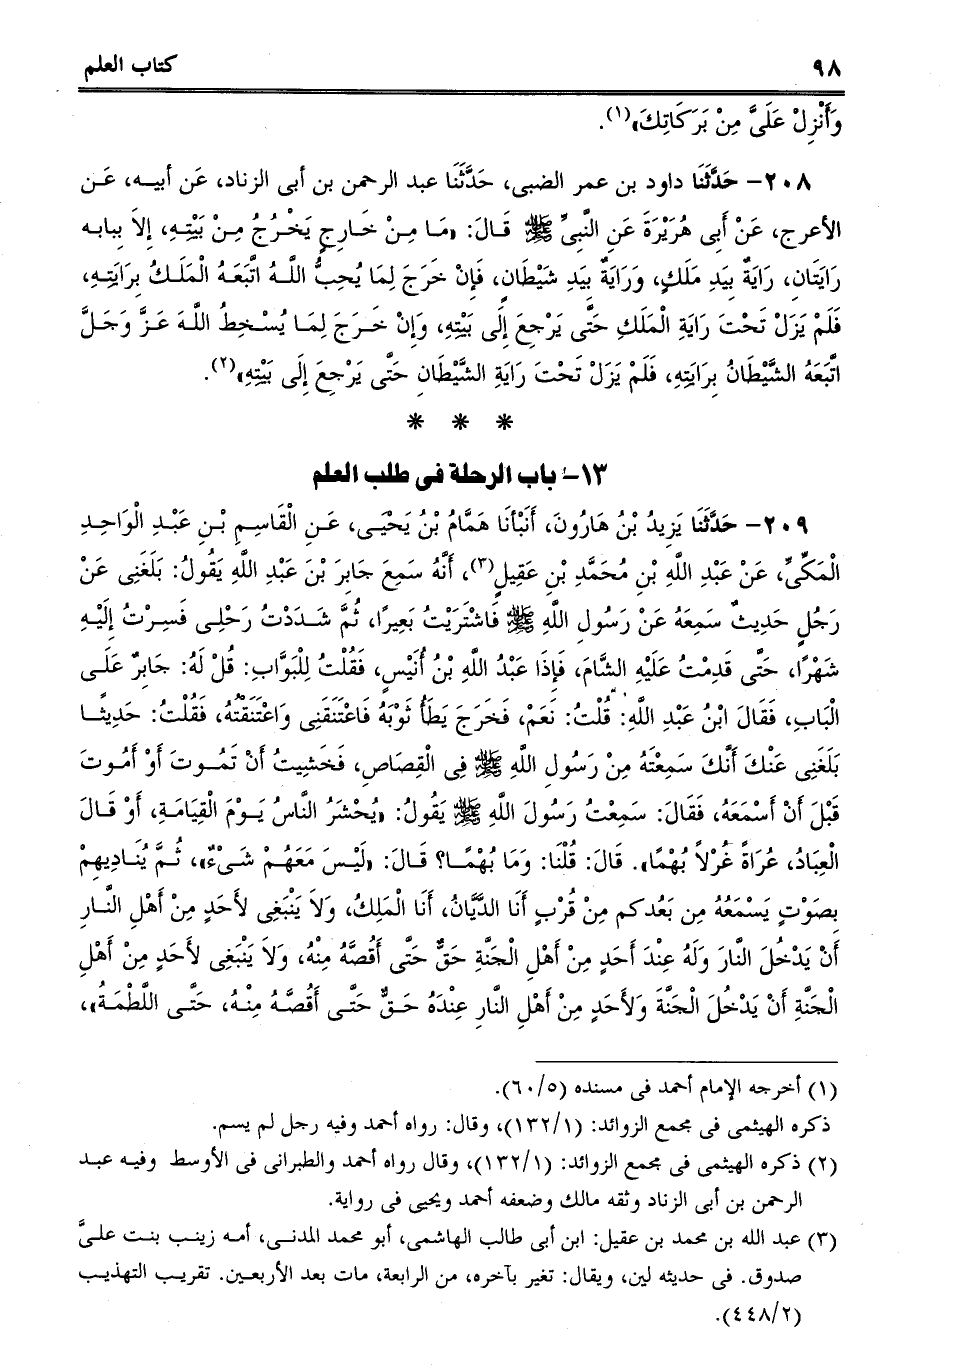 ٩٨ كتاب العلم
وَأَنْزِلْ عَلَىَّ مِنْ بَرَكَاتِكَ»(١).
٢٠٨- حَدَّثَنَا داود بن عمر الضبى، حَدَّثَنَا عبد الرحمن بن أبى الزناد، عَن أبيه، عَن
الأعرج، عَنْ أَبِى هُرَيْرَةَ عَنِ النَّبِىِّ ﷺ قَالَ: «مَا مِنْ خَارِجٍ يَخْرُجُ مِنْ بَيْتِهِ، إلاَ ببابه
رَايَتَان، رَايَةٌ بِيَدِ مَلَكٍ، ورَايَةٌ بِيَدِ شَيْطَانٍ، فَإِنْ خَرَجَ لِمَا يُحِبُّ اللَّهُ اتَّبَعَهُ الْمَلَكُ بِرَايَتِهِ،
فَلَمْ يَزَلْ تَحْتَ رَايَةِ الْمَلَكِ حَتَّى يَرْجِعَ إِلَى بَيْتِهِ، وَإِنْ خَرَجَ لِمَا يُسْخِطُ اللَّهَ عَزَّ وَجَلَّ
اتَّبَعَهُ الشَّيْطَانُ بِرَايَتِهِ، فَلَمْ يَزَلْ تَحْتَ رَايَةِ الشَّيْطَانِ حَتَّى يَرْجِعَ إِلَى بَيْتِهِ»(٢).
* * *
١٣- باب الرحلة فى طلب العلم
٢٠٩- حَدَّثَنَا يَزِيدُ بْنُ هَارُونَ، أَنبْأنَا هَمَّامُ بْنُ يَحْيَى، عَنِ الْقَاسِمِ بْنِ عَبْدِ الْوَاحِدِ
الْمَكِّىِّ، عَنْ عَبْدِ اللَّهِ بْنِ مُحَمَّدِ بْنِ عَقِيلٍ(٣)، أَنَّهُ سَمِعَ جَابِرَ بْنَ عَبْدِ اللَّهِ يَقُولُ: بَلَغَنِى عَنْ
رَجُلٍ حَدِيثٌ سَمِعَهُ عَنْ رَسُولِ اللَّهِ ﷺ فَاشْتَرَيْتُ بَعِيرًا، ثُمَّ شَدَدْتُ رَحْلِى فَسِرْتُ إِلَيْهِ
شَهْرًا، حَتَّى قَدِمْتُ عَلَيْهِ الشَّامَ، فَإِذَا عَبْدُ اللَّهِ بْنُ أُنَيْسٍ، فَقُلْتُ لِلْبَوَّابِ: قُلْ لَهُ: جَابِرٌ عَلَى
الْبَابِ، فَقَالَ ابْنُ عَبْدِ اللَّهِ: قُلْتُ: نَعَمْ، فَخَرَجَ يَطَأُ ثَوْبَهُ فَاعْتَنَقَنِى وَاعْتَنَقْتُهُ، فَقُلْتُ: حَدِيثًا
بَلَغَنِى عَنْكَ أَنَّكَ سَمِعْتَهُ مِنْ رَسُولِ اللَّهِ ﷺ فِى الْقِصَاصِ، فَخَشِيتُ أَنْ تَمُوتَ أَوْ أَمُوتَ
قَبْلَ أَنْ أَسْمَعَهُ، فَقَالَ: سَمِعْتُ رَسُولَ اللَّهِ ﷺ يَقُولُ: «يُحْشَرُ النَّاسُ يَوْمَ الْقِيَامَةِ، أَوْ قَالَ
الْعِبَادُ، عُرَاةً غُرْلاً بُهْمًا». قَالَ: قُلْنَا: وَمَا بُهْمًا؟ قَالَ: «لَيْسَ مَعَهُمْ شَىْءٌ»، ثُمَّ يُنَادِيهِمْ
بِصَوْتٍ يَسْمَعُهُ مِن بَعُدكم مِنْ قُربٍ أَنَا الدَّيَّانُ، أَنَا الْمَلِكُ، وَلاَ يَنْبَغِى لأَحَدٍ مِنْ أَهْلِ النَّارِ
أَنْ يَدْخُلَ النَّارَ وَلَهُ عِنْدَ أَحَدٍ مِنْ أَهْلِ الْجَنَّةِ حَقٌّ حَتَّى أَقُصَّهُ مِنْهُ، وَلاَ يَنْبَغِى لأَحَدٍ مِنْ أَهْلِ
الْجَنَّةِ أَنْ يَدْخُلَ الْجَنَّةَ وَلأَحَدٍ مِنْ أَهْلِ النَّارِ عِنْدَهُ حَقٌّ حَتَّى أَقُصَّهُ مِنْهُ، حَتَّى اللَّطْمَةُ»،
(١) أخرجه الإمام أحمد فى مسنده (٦٠/٥).
ذكره الهيثمى فى مجمع الزوائد: (١٣٢/١)، وقال: رواه أحمد وفيه رجل لم يسم.
(٢) ذكره الهيثمى فى مجمع الزوائد: (١٣٢/١)، وقال رواه أحمد والطبرانى فى الأوسط وفيه عبد
الرحمن بن أبى الزناد وثقه مالك وضعفه أحمد ويحيى فى رواية.
(٣) عبد الله بن محمد بن عقيل: ابن أبى طالب الهاشمى، أبو محمد المدنى، أمه زينب بنت علىَّ
صدوق. فى حديثه لين، ويقال: تغير بآخره، من الرابعة، مات بعد الأربعين. تقريب التهذيب
(٤٤٨/٢).